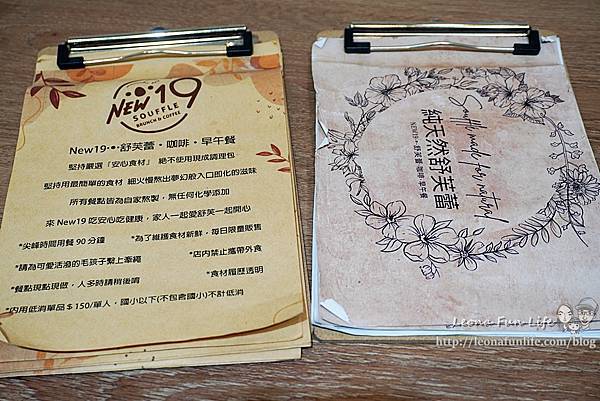 NEW 19
SOUFFLE
BRUNCH & COFFEE
New19·舒芙蕾·咖啡·早午餐
堅持嚴選「安心食材」 絕不使用現成調理包
堅持用最簡單的食材 細火慢熬出夢幻般入口即化的滋味
所有餐點皆為自家熬製,無任何化學添加
來 New19 吃安心吃健康,家人一起愛舒芙一起開心
*尖峰時間用餐 90 分鐘 *為了維護食材新鮮,每日限量販售
*請為可愛活潑的毛孩子繫上牽繩 *店內禁止攜帶外食
*餐點現點現做,人多時請稍後唷 *食材履歷透明
*內用低消單品$150/單人,國小以下(不包含國小)不計低消
Souffle made from natural
純天然舒芙蕾
NEW19·舒芙蕾 咖啡 早午餐
Leona Fun Life
http://leonafunlife.com/blog